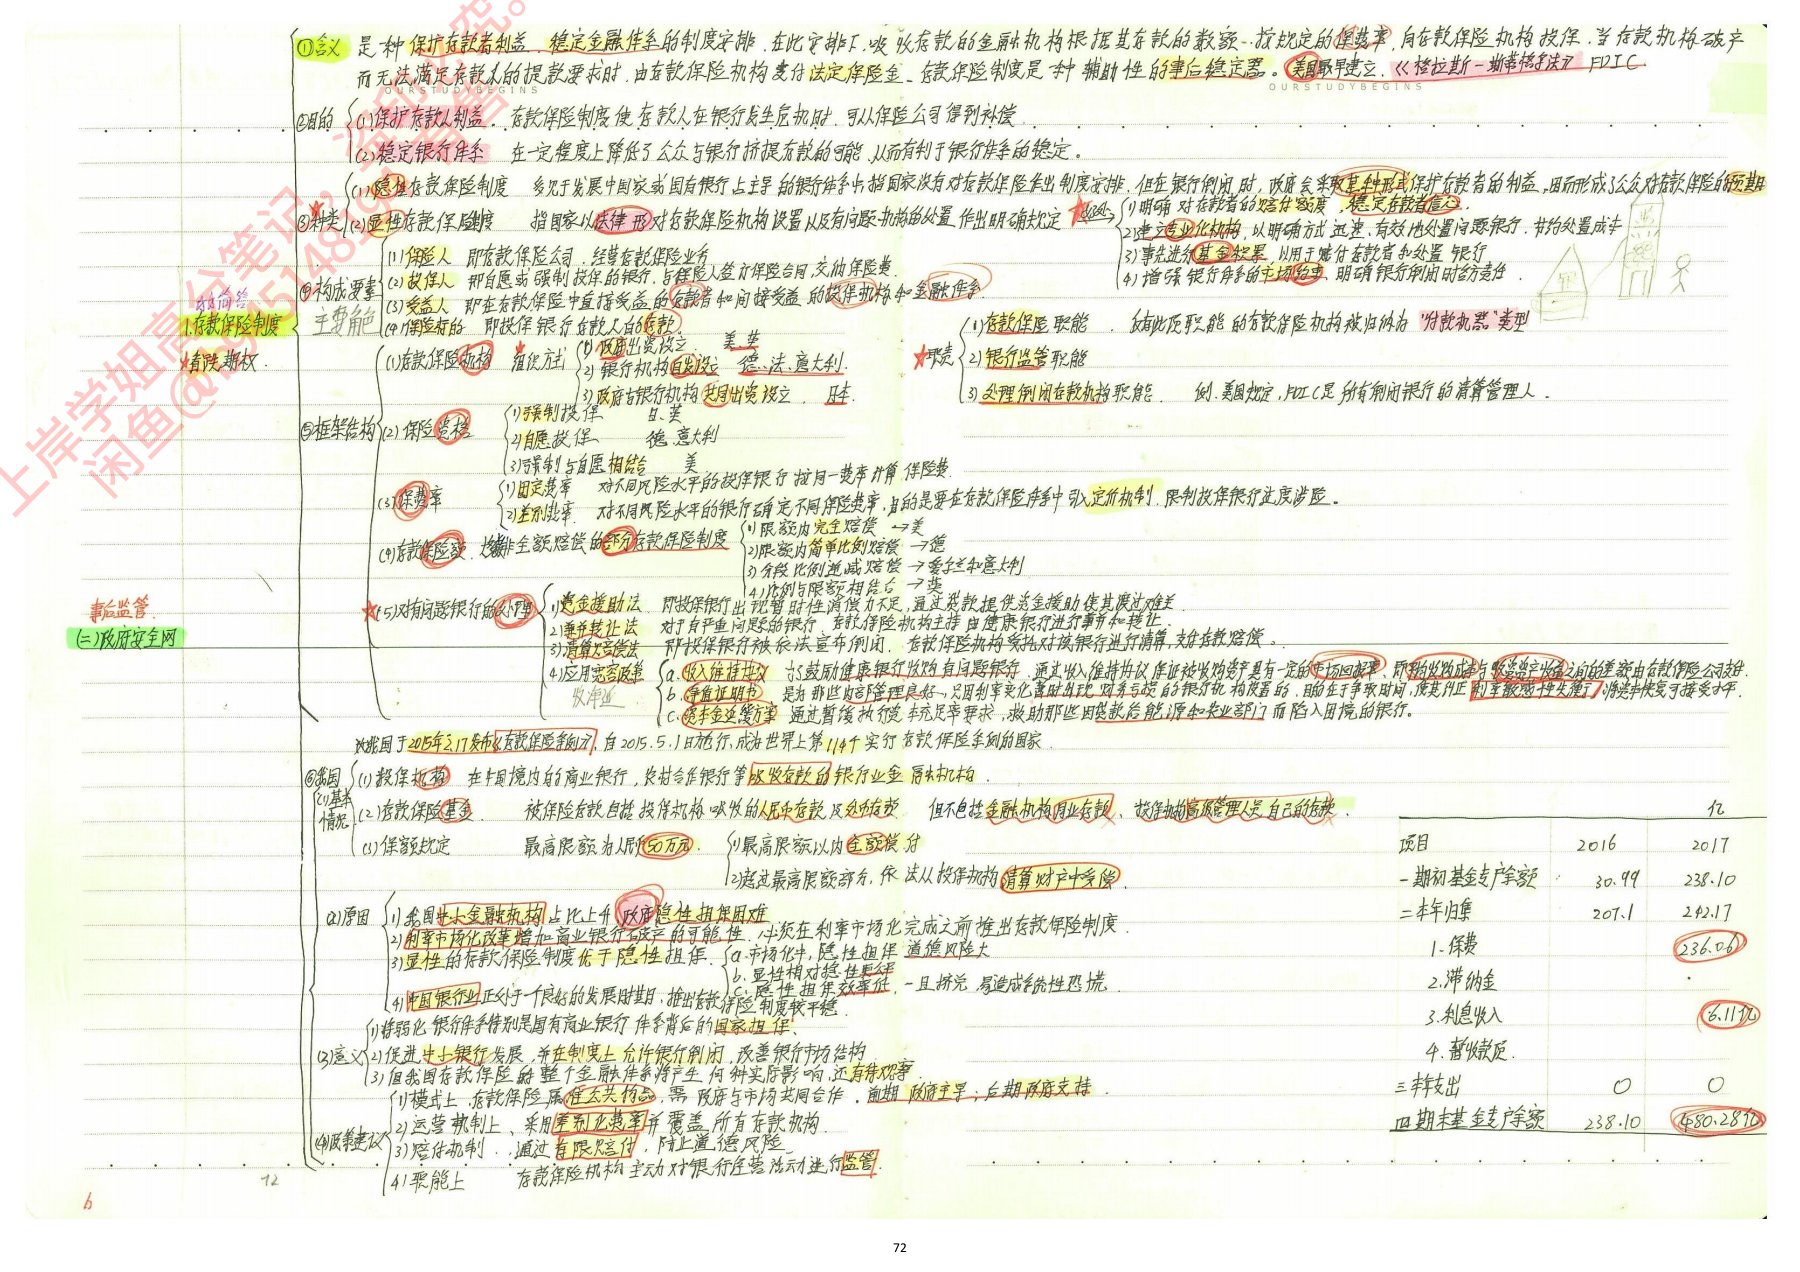 ①含义 是一种保护存款者利益、稳定金融体系的制度安排,在此安排下,吸收存款的金融机构根据其存款的数额,按规定的保费率,向存款保险机构投保,当存款机构破产
而无法满足存款人的提款要求时,由存款保险机构支付法定保险金。存款保险制度是一种辅助性的事后稳定器。美国最早建立,《格拉斯—斯蒂格尔法》FDIC
OURSTUDYBEGINS OURSTUDYBEGINS
②目的 (1)保护存款人利益. 存款保险制度使存款人在银行发生危机时,可以从保险公司得到补偿
(2)稳定银行体系 在一定程度上降低了公众与银行挤提存款的可能,从而有利于银行体系的稳定。
③种类 (1)隐性存款保险制度 多见于发展中国家或国有银行占主导的银行体系中,指国家没有对存款保险作出制度安排,但在银行倒闭时,政府会采取某种形式保护存款者的利益,因而形成了公众对存款保险的预期
(2)显性存款保险制度 指国家以法律形式对存款保险机构设置以及有问题机构的处置作出明确规定
1)明确对存款者的赔付额度,稳定存款者信心
2)建立专业化机构,以明确方式迅速、有效地处置问题银行,节约处置成本
3)事先进行基金积累,以用于赔付存款者和处置银行
4)增强银行体系的市场约束,明确银行倒闭时各方责任.
④构成要素 (1)保险人 即存款保险公司,经营存款保险业务
(2)投保人 即自愿或强制投保的银行,与保险人签订保险合同,交纳保险费.
(3)受益人 即在存款保险中直接受益的存款者和间接受益的投保机构和金融体系.
(4)保险标的 即投保银行存款人的存款
事前监管
1.存款保险制度
看跌期权
⑤框架结构 (1)存款保险机构 组织方式 1)政府出资设立 美、英
2)银行机构自发设立 德、法、意大利.
3)政府与银行机构共同出资设立 日本
职责 1)存款保险职能. 仅有此项职能的存款保险机构被归纳为"付款机器"类型
2)银行监管职能
3)处理倒闭存款机构职能. 例.美国规定,FDIC是所有倒闭银行的清算管理人.
(2)保险资格 1)强制投保 日.英
2)自愿投保 德.意大利
3)强制与自愿相结合 美
(3)保费率 1)固定费率 对不同风险水平的投保银行按同一费率计算保险费
2)差别费率 对不同风险水平的银行确定不同保险费率,目的是要在存款保险体系中引入定价机制.限制投保银行过度涉险.
(4)存款保险额. 大多数非全额赔偿的部分存款保险制度
1)限额内完全赔偿 →美
2)限额内简单比例赔偿 →德
3)分段比例递减赔偿 →爱尔兰和意大利
4)比例与限额相结合 →英
(5)对有问题银行的处理 1)资金援助法 即投保银行出现暂时性清偿力不足,通过贷款提供资金援助使其渡过难关
2)兼并转让法 对于有严重问题的银行,存款保险机构主持由健康银行进行兼并和转让.
3)清算赔偿法 即投保银行被依法宣布倒闭,存款保险机构受托对该银行进行清算,支付存款赔偿.
4)应用宽容政策 a.收入维持协议 为鼓励健康银行收购有问题银行,通过收入维持协议,保证被收购资产具有一定的市场回报率,即将收购成本与收益资产收益之间的差额由存款保险公司支持
收净延 b.净值证明书 是为那些内部管理良好、只因利率变化暂时出现财务亏损的银行机构设置的,目的在于争取时间,使其纠正利率敏感性失衡,将资本恢复可接受水平.
c.资本金延缓方案 通过暂缓执行资本充足率要求,救助那些因贷款给能源和农业部门而陷入困境的银行。
事后监管
(二)政府安全网
我国于2015年2.17发布《存款保险条例》,自2015.5.1日施行,成为世界上第114个实行存款保险条例的国家
⑥我国
(1)基本情况 (1)投保机构 在中国境内的商业银行,农村合作银行等吸收存款的银行业金融机构.
(2)存款保险基金 被保险存款包括投保机构吸收的人民币存款及外币存款 但不包括金融机构同业存款、投保机构高级管理人员自己的存款
(3)保额规定 最高限额为人民币50万元. 1)最高限额以内全额偿付
2)超过最高限额部分,依法从投保机构清算财产中受偿.
(2)原因 1)我国中小金融机构占比上升,政府隐性担保困难
2)利率市场化改革增加商业银行破产的可能性,必须在利率市场化完成之前推出存款保险制度
3)显性的存款保险制度优于隐性担保. a.市场化中,隐性担保道德风险大
b.显性相对隐性更公平
c.隐性担保效率低,一旦挤兑,易造成系统性恐慌
4)中国银行业正处于一个良好的发展时期,推出存款保险制度较平稳
(3)意义 1)将弱化银行体系特别是国有商业银行体系背后的国家担保.
2)促进中小银行发展,并在制度上允许银行倒闭,改善银行市场结构
3)但我国存款保险将对整个金融体系将产生何种实际影响,还有待观察.
(4)政策建议 1)模式上 存款保险属准公共物品,需政府与市场共同合作. 前期政府主导;后期政府支持
2)运营机制上,采用差别化费率并覆盖所有存款机构.
3)赔付机制. 通过有限赔付,防止道德风险
4)职能上 存款保险机构主动对银行经营活动进行监管.
亿
项目 2016 2017
一期初基金专户余额 30.99 238.10
二本年归集 207.1 242.17
1.保费 236.06
2.滞纳金
3.利息收入 6.11亿
4.暂收款项.
三本年支出 0 0
四期末基金专户余额 238.10 480.28亿
72
6
72
上岸学姐高分笔记,